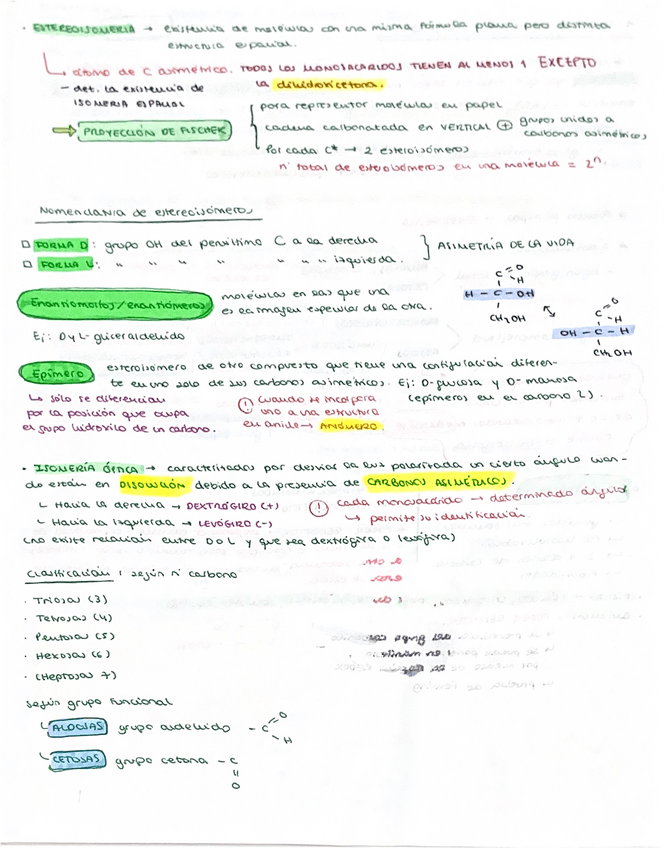 · ESTEREOISOMERIA → existencia de moléculas con una misma fórmula plana pero distinta
estructura espacial.
↳ átomo de C asimétrico. TODOS LOS MONOSACÁRIDOS TIENEN AL MENOS 1 EXCEPTO
la dihidroxicetona.
- det. la existencia de
ISOMERIA ESPACIAL
⇒ PROYECCIÓN DE FISCHER
para representar moléculas en papel
cadena carbonatada en VERTICAL ⊕ grupos unidos a
carbonos asimétricos
Por cada C* → 2 esteroisómeros
nº total de esteroisómeros en una molécula = 2ⁿ.
Nomenclatura de estereoisómeros
□ FORMA D: grupo OH del penúltimo C a la derecha
□ FORMA L: " " " " " " " izquierda.
} ASIMETRÍA DE LA VIDA
Enantiomorfos/enantiómeros
moléculas en las que una
es la imagen especular de la otra.
Ej: D y L-gliceraldehído
C = O
H
H - C - OH
CH₂OH
C = O
H
OH - C - H
CH₂OH
Epímero
esteroisómero de otro compuesto que tiene una configuración diferen-
te en uno solo de sus carbonos asimétricos. Ej: D-glucosa y D-manosa
(epímeros en el carbono 2).
↳ sólo se diferencian
por la posición que ocupa
el grupo hidroxilo de un carbono.
! cuando se incorpora
uno a una estructura
en anillo → ANÓMERO.
· ISOMERÍA ÓPTICA → caracterizados por desviar la luz polarizada un cierto ángulo cuan-
do están en DISOLUCIÓN debido a la presencia de CARBONOS ASIMÉTRICOS.
↳ Hacia la derecha → DEXTRÓGIRO (+)
↳ Hacia la izquierda → LEVÓGIRO (-)
! cada monosacárido → determinado ángulo
↳ permite su identificación
(no existe relación entre D o L y que sea dextrógira o levógira)
Clasificación: según nº carbono
· Triosas (3)
· Tetrosas (4)
· Pentosas (5)
· Hexosas (6)
· (Heptosas 7)
Según grupo funcional
↳ ALDOSAS grupo aldehído - C = O
H
↳ CETOSAS grupo cetona - C
=
O